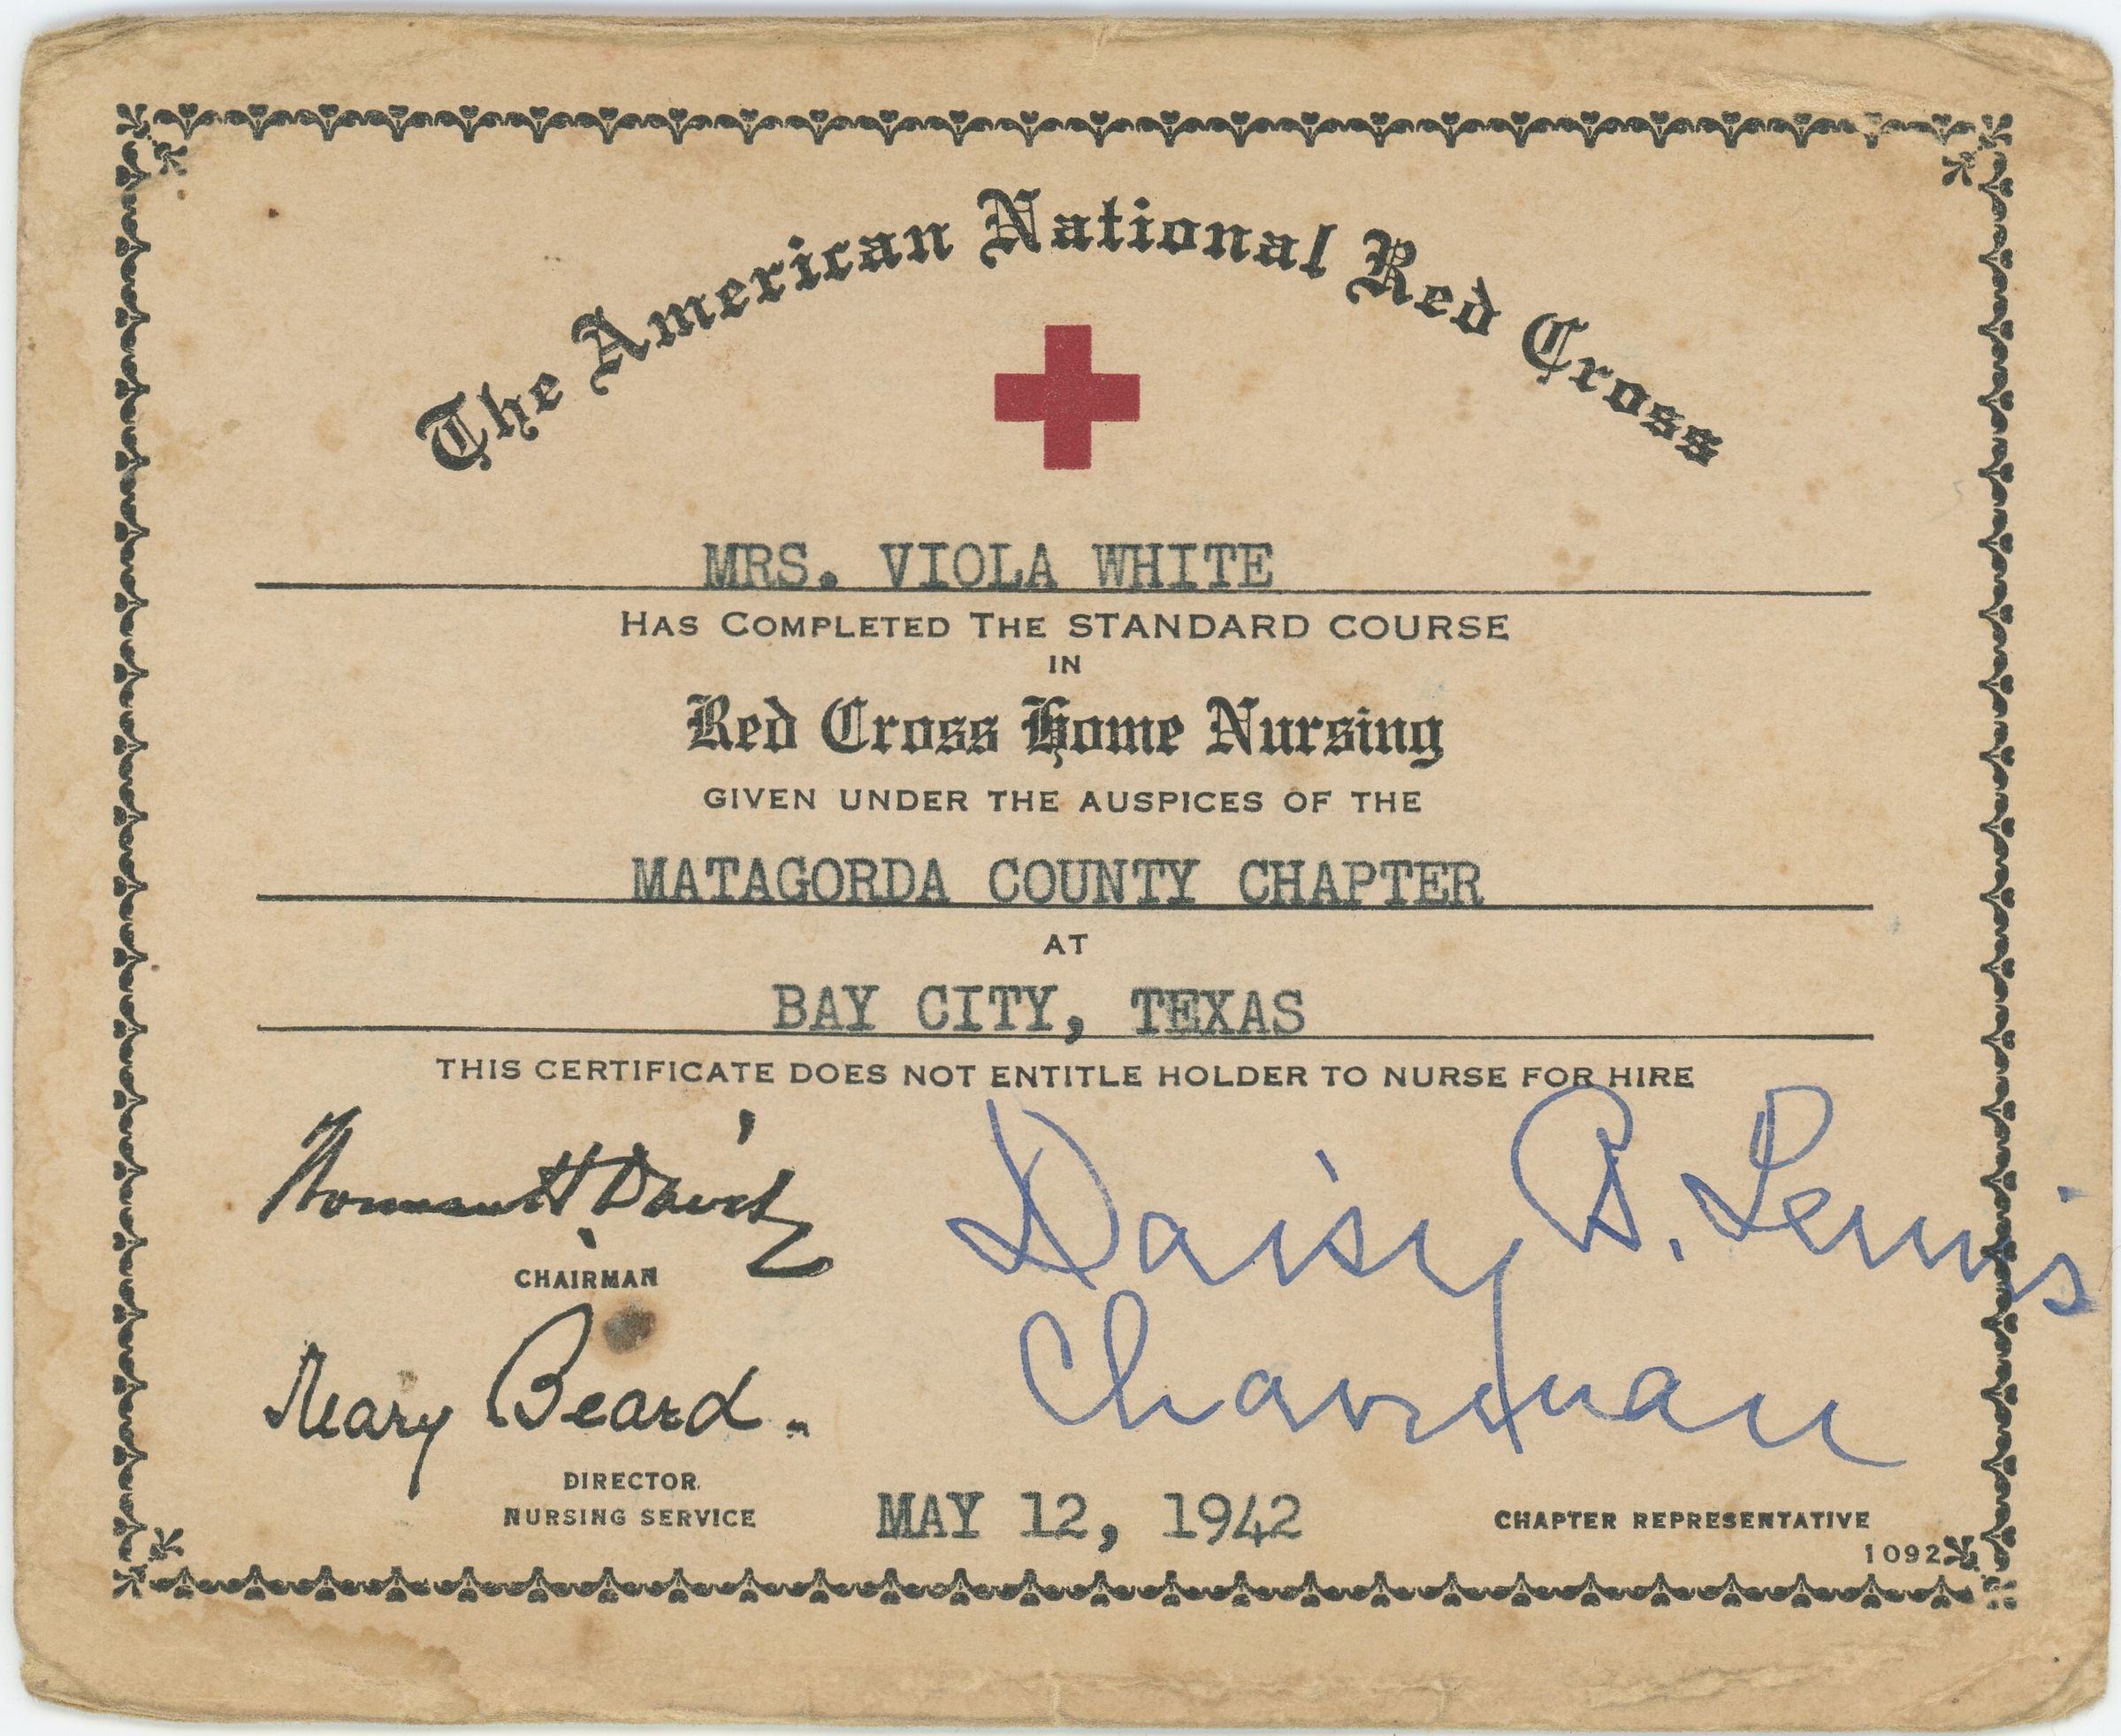 The American National Red Cross
MRS. VIOLA WHITE
HAS COMPLETED THE STANDARD COURSE
IN
Red Cross Home Nursing
GIVEN UNDER THE AUSPICES OF THE
MATAGORDA COUNTY CHAPTER
AT
BAY CITY, TEXAS
THIS CERTIFICATE DOES NOT ENTITLE HOLDER TO NURSE FOR HIRE
Norman H Davis
CHAIRMAN
Daisy B. Lewis
Chairman
Mary Beard.
DIRECTOR
NURSING SERVICE
MAY 12, 1942
CHAPTER REPRESENTATIVE
1092